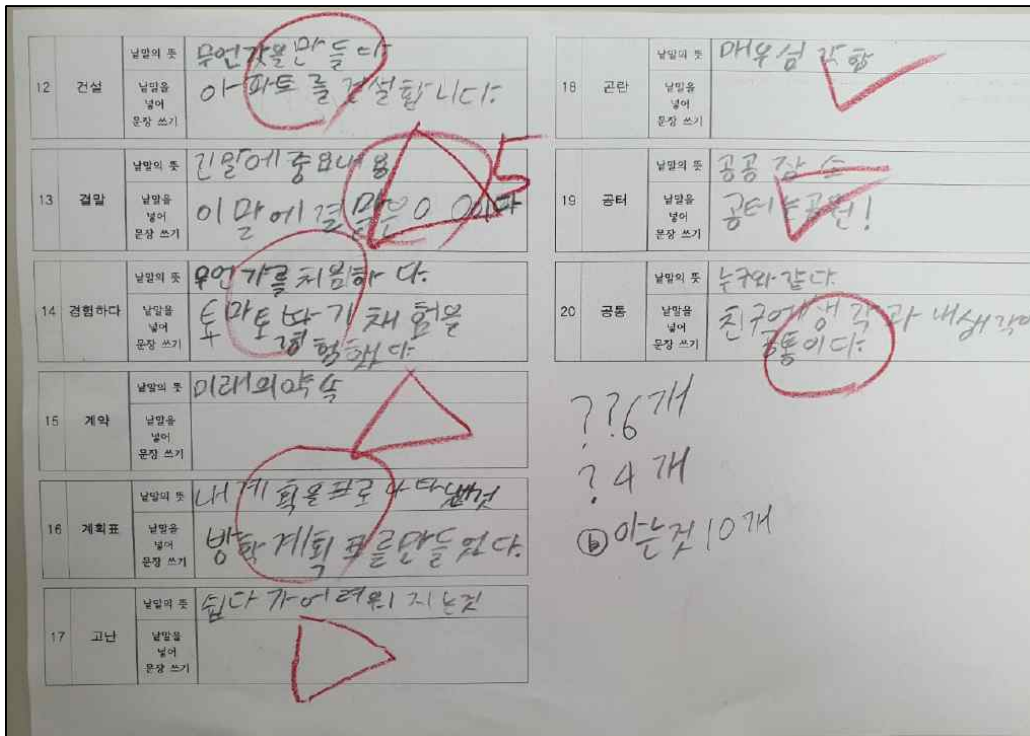 12 건설
낱말의 뜻 무언갓을 만들다
낱말을 넣어 문장 쓰기 아파토를 건설합니다.
13 결말
낱말의 뜻 긴말에 중요내용
낱말을 넣어 문장 쓰기 이말에 결말은 0 0이다
5
14 경험하다
낱말의 뜻 무언가를 처음하다.
낱말을 넣어 문장 쓰기 토마토 따기 채험을
경험했다.
15 계약
낱말의 뜻 미래의약속
낱말을 넣어 문장 쓰기
16 계획표
낱말의 뜻 내 계획을표로 나타낸것
낱말을 넣어 문장 쓰기 방학 계획표를만들었다.
17 고난
낱말의 뜻 쉽다가어려워지는것
낱말을 넣어 문장 쓰기
18 곤란
낱말의 뜻 매우심각함
낱말을 넣어 문장 쓰기
19 공터
낱말의 뜻 공공장소
낱말을 넣어 문장 쓰기 공터는공원!
20 공통
낱말의 뜻 누구와같다.
낱말을 넣어 문장 쓰기 친구에생각과 내생각이
공통이다.
??6개
?4개
아는것10개